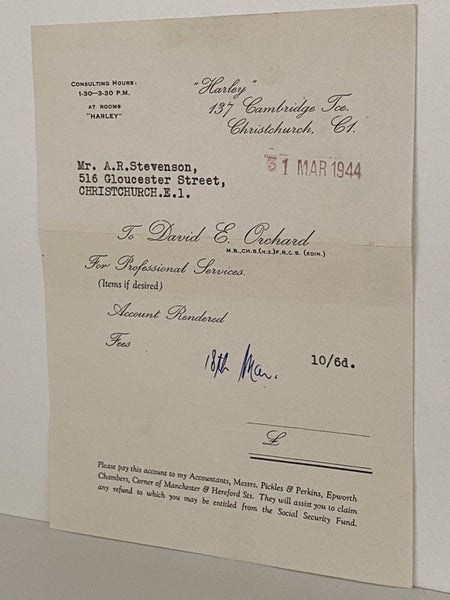 CONSULTING HOURS:
1-30—3-30 P.M.
AT ROOMS
"HARLEY"
"Harley"
137 Cambridge Tce.
Christchurch, C1.
31 MAR 1944
Mr. A.R.Stevenson,
516 Gloucester Street,
CHRISTCHURCH.E.1.
To David E. Orchard
M.B.,CH.B.(N.Z.)F.R.C.S. (EDIN.)
For Professional Services.
(Items if desired)
Account Rendered
Fees
18th Mar. 10/6d.
£
Please pay this account to my Accountants, Messrs. Pickles & Perkins, Epworth
Chambers, Corner of Manchester & Hereford Sts. They will assist you to claim
any refund to which you may be entitled from the Social Security Fund.